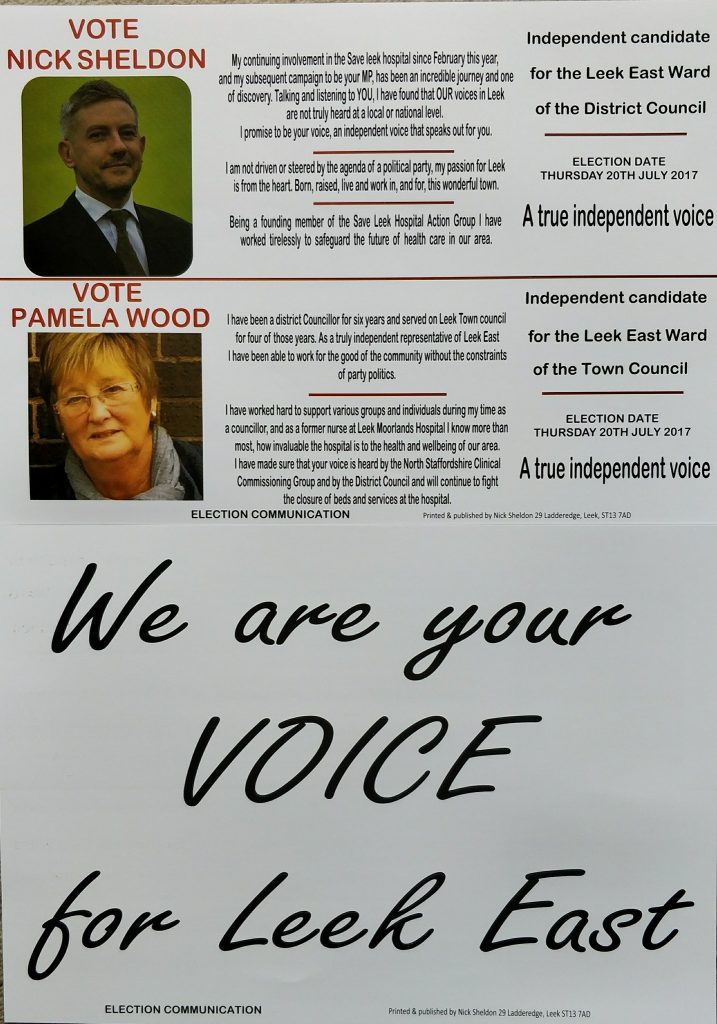 VOTE
NICK SHELDON
My continuing involvement in the Save leek hospital since February this year,
and my subsequent campaign to be your MP, has been an incredible journey and one
of discovery. Talking and listening to YOU, I have found that OUR voices in Leek
are not truly heard at a local or national level.
I promise to be your voice, an independent voice that speaks out for you.
I am not driven or steered by the agenda of a political party, my passion for Leek
is from the heart. Born, raised, live and work in, and for, this wonderful town.
Being a founding member of the Save Leek Hospital Action Group I have
worked tirelessly to safeguard the future of health care in our area.
Independent candidate
for the Leek East Ward
of the District Council
ELECTION DATE
THURSDAY 20TH JULY 2017
A true independent voice
VOTE
PAMELA WOOD
I have been a district Councillor for six years and served on Leek Town council
for four of those years. As a truly independent representative of Leek East
I have been able to work for the good of the community without the constraints
of party politics.
I have worked hard to support various groups and individuals during my time as
a councillor, and as a former nurse at Leek Moorlands Hospital I know more than
most, how invaluable the hospital is to the health and wellbeing of our area.
I have made sure that your voice is heard by the North Staffordshire Clinical
Commissioning Group and by the District Council and will continue to fight
the closure of beds and services at the hospital.
Independent candidate
for the Leek East Ward
of the Town Council
ELECTION DATE
THURSDAY 20TH JULY 2017
A true independent voice
ELECTION COMMUNICATION
Printed & published by Nick Sheldon 29 Ladderedge, Leek, ST13 7AD
We are your
VOICE
for Leek East
ELECTION COMMUNICATION
Printed & published by Nick Sheldon 29 Ladderedge, Leek ST13 7AD